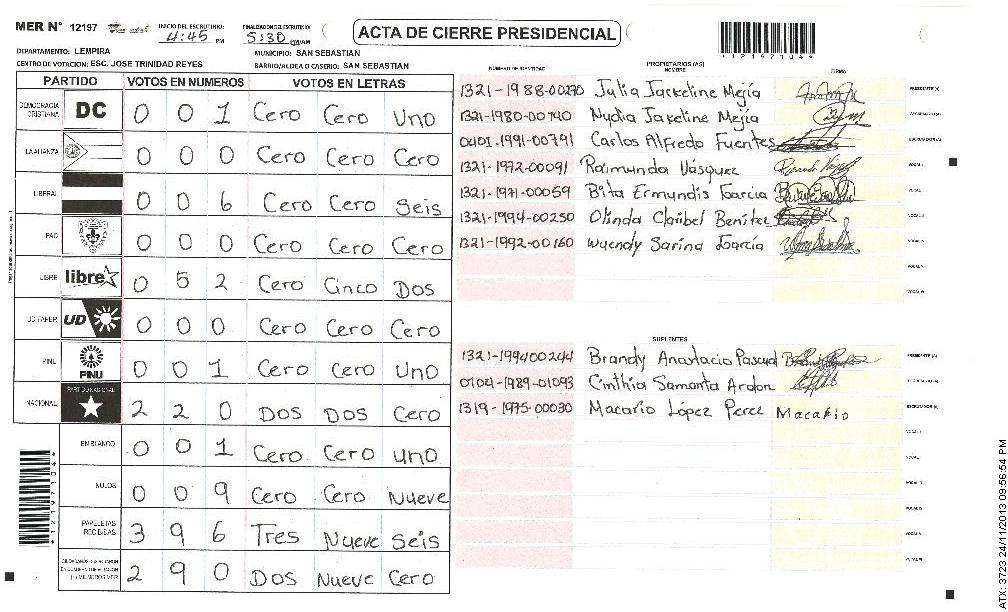 MER Nº 12197 INICIO DEL ESCRUTINIO: 4:45 PM FINALIZACION DEL ESCRUTINIO: 5:30 PM/AM ACTA DE CIERRE PRESIDENCIAL
*12197104*
DEPARTAMENTO: LEMPIRA MUNICIPIO: SAN SEBASTIAN
CENTRO DE VOTACION: ESC. JOSE TRINIDAD REYES BARRIO/ALDEA O CASERIO: SAN SEBASTIAN
PARTIDO VOTOS EN NUMEROS VOTOS EN LETRAS
DEMOCRACIA CRISTIANA DC 0 0 1 Cero Cero Uno
LA ALIANZA 0 0 0 Cero Cero Cero
LIBERAL 0 0 6 Cero Cero Seis
PAC 0 0 0 Cero Cero Cero
LIBRE libre 0 5 2 Cero Cinco Dos
UD FAPER UD 0 0 0 Cero Cero Cero
PINU PINU 0 0 1 Cero Cero Uno
NACIONAL PARTIDO NACIONAL 2 2 0 Dos Dos Cero
EN BLANCO 0 0 1 Cero Cero uno
NULOS 0 0 9 Cero Cero Nueve
PAPELETAS RECIBIDAS 3 9 6 Tres Nueve Seis
2 9 0 Dos Nueve Cero
NÚMERO DE IDENTIDAD PROPIETARIOS (AS) NOMBRE FIRMA
1321-1988-00270 Julia Jackeline Mejía PRESIDENTE (A)
1321-1980-00740 Nydia Jakeline Mejía SECRETARIO (A)
0401-1991-00791 Carlos Alfredo Fuentes ESCRUTADOR (A)
1321-1972-00091 Raimunda Vásquez VOCAL I
1321-1971-00059 Bita Ermundis Garcia
1321-1994-00250 Olinda Claribel Benitez
1321-1992-00160 Wuendy Sarina García
SUPLENTES
1321-1994 00244 Brandy Anastacio Pascual PRESIDENTE (A)
0104-1989-01093 Cinthia Samanta Ardon
1319-1975-00030 Macario López Perez Macario ESCRUTADOR (A)
*12197104*
ATX: 3723 24/11/2013 09:56:54 PM